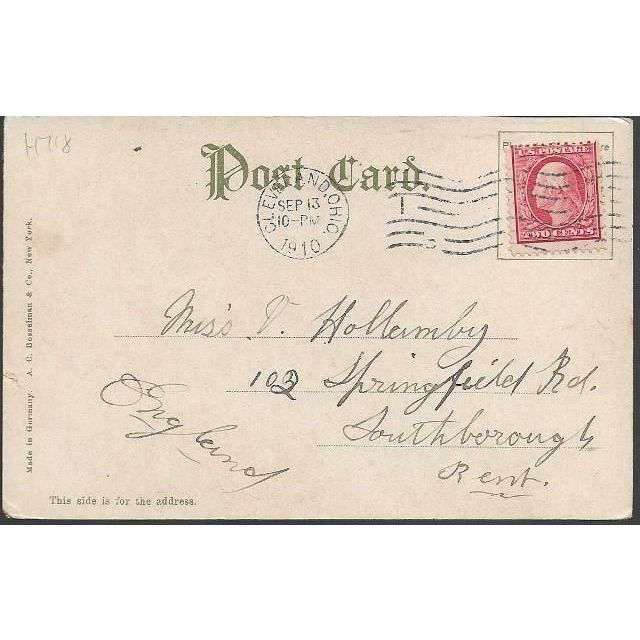 H718
Post Card.
CLEVELAND, OHIO.
SEP 13
10-PM
1910
1
3
U.S. POSTAGE
TWO CENTS
Miss V. Hollamby
103 Springfield Rd.
Southborough
Kent.
England
Made in Germany. A. C. Bosselman & Co., New York.
This side is for the address.